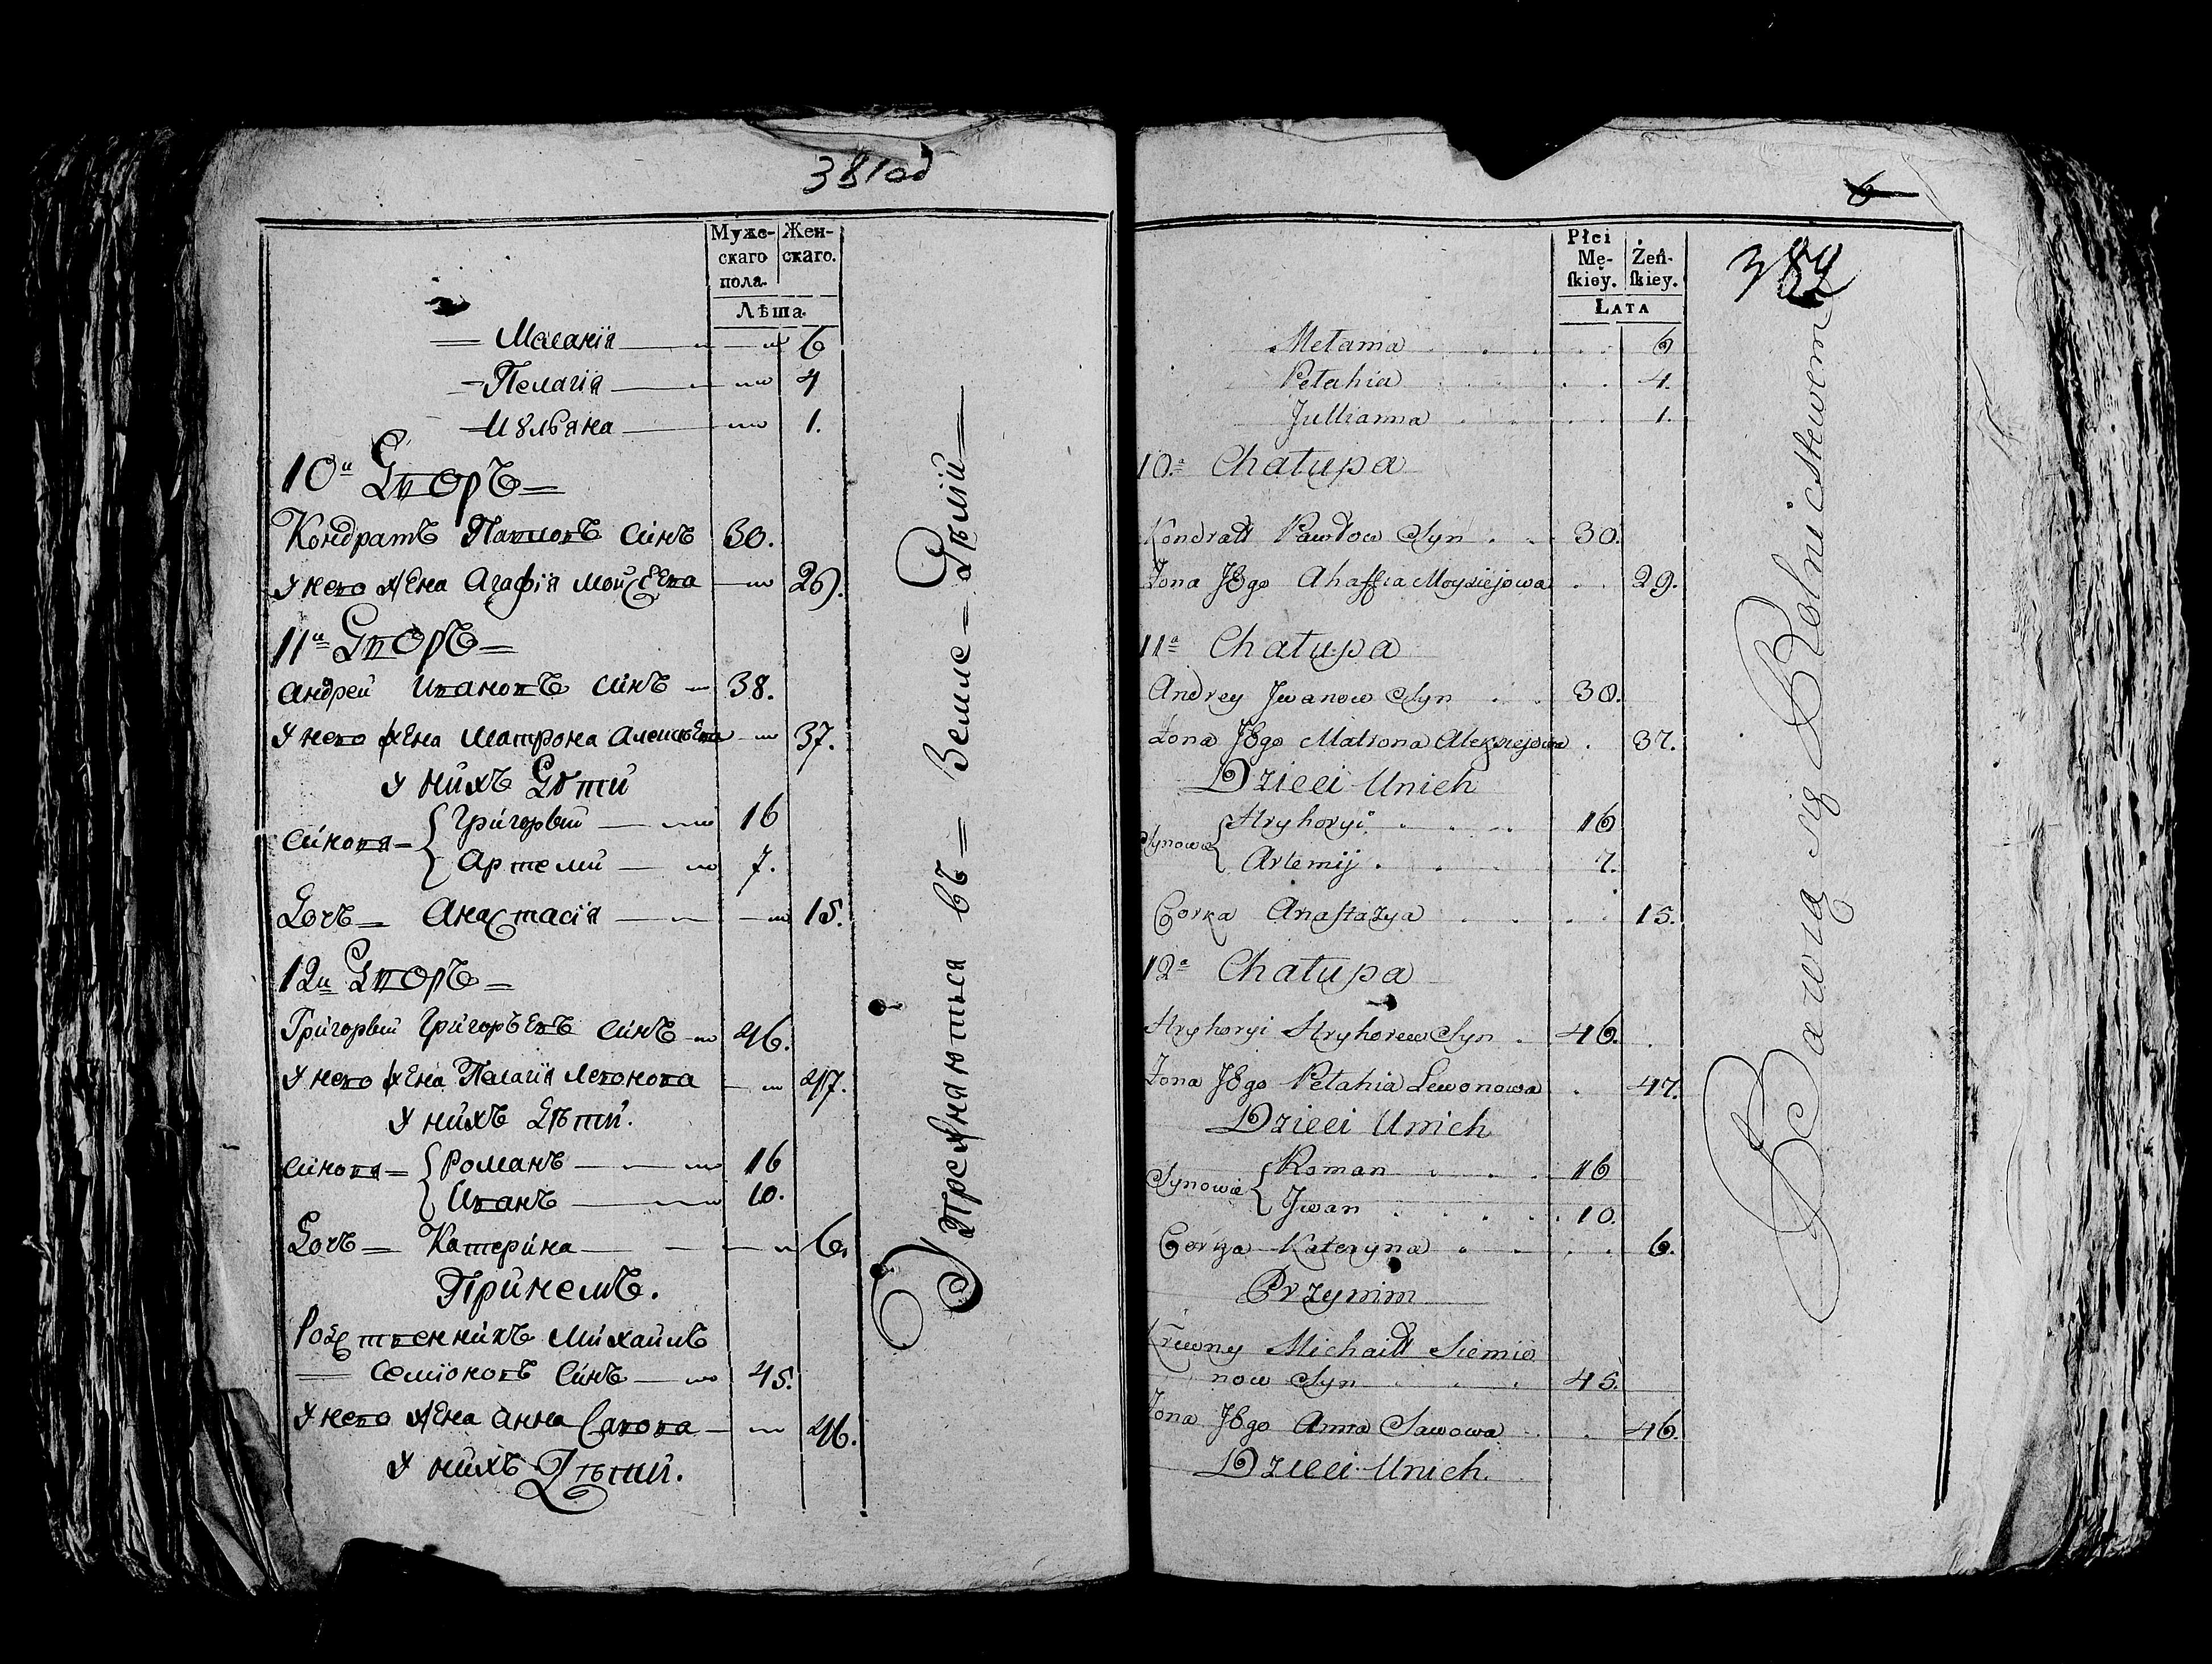 381об
Муже-
скаго
пола.
Жен-
скаго.
Лѣта.
— Маланія 6
— Пелагія 4
— Иульяна 1.
10й Дворъ —
Кондратъ Павловъ синъ 30.
У него жена Агафія Мойсеева 29.
11й Дворъ —
Андрей Ивановъ синъ 38.
У него жена Матрона Алексѣева 37.
У нихъ Дѣти
Синовя — { Григорьий 16
Артемий 7.
Дочъ — Анастасія 15.
12й Дворъ —
Григорьий Григорьевъ синъ 46.
У него жена Пелагія Левонова 47.
У нихъ Дѣти.
Синовя — { Романъ 16
Иванъ 10.
Дочъ — Катерина 6.
При немъ.
Родственникъ Михайлъ
Семіоновъ Синъ 45.
У него жена Анна Савова 46.
У нихъ Дѣти.
Упрежнаютъся въ = Земле = Дѣлій
6
382
Płci
Mę-
ſkiey.
Żeń-
ſkiey.
LATA
Mełania 6
Pełahia 4.
Jullianna 1.
10ª Chałupa
Kondratt Pawłow Syn 30.
Żona JEgo Ahaffia Moysiejowa 29.
11ª Chałupa
Andrey Jwanow Syn 38.
Żona JEgo Matrona Alexiejowa 37.
Dzieci Unich
Synowie { Hryhoryi 16
Artemij 7.
Corka Anaſtazya 15.
12ª Chałupa
Hryhoryi Hryhorew Syn 46.
Żona JEgo Pełahia Lewonowa 47.
Dzieci Unich
Synowie { Roman 16
Jwan 10.
Corka Kateryna 6.
Przynim
Krewny Michaiłł Siemio
now Syn 45.
Żona JEgo Anna Sawowa 46.
Dzieci Unich.
Bawią się Rolnictwem